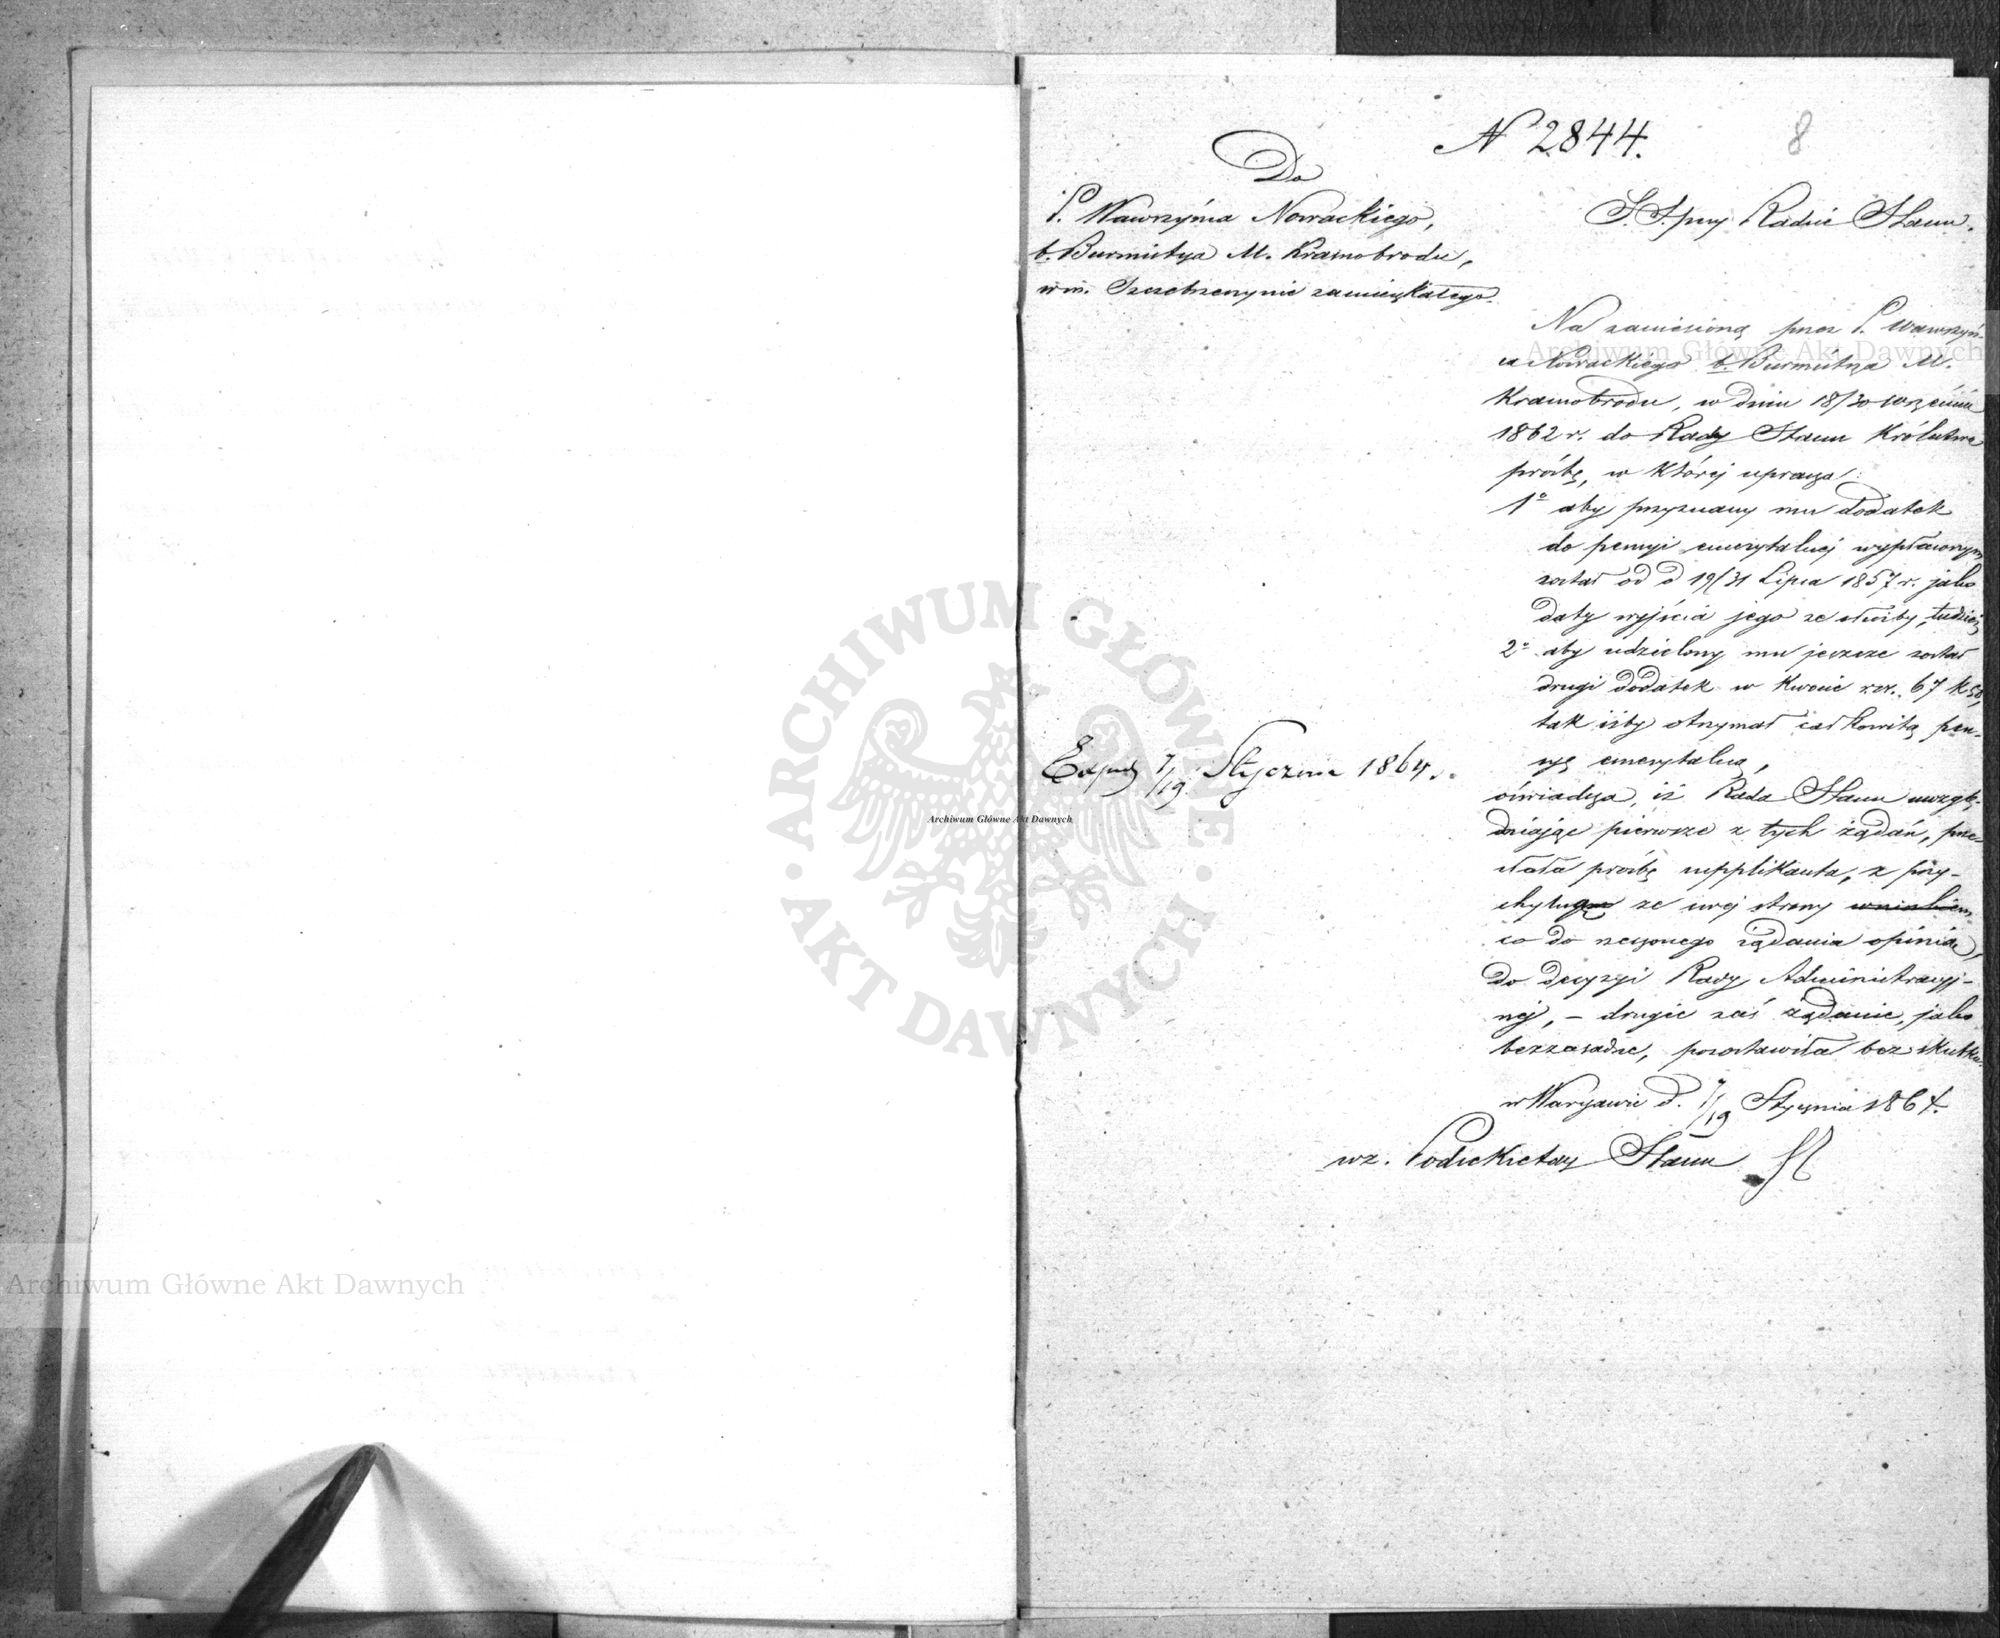 N 2844.
8
Do
P. Wawrzyńca Nowackiego,
b. Burmistrza M. Krasnobrodu,
w m. Szczebrzeszynie zamieszkałego.
S. S. przy Radzie Stanu.
Na zaniesioną przez P. Wawrzyń-
ca Nowackiego b. Burmistrza M.
Krasnobrodu, w dniu 18/30 Września
1862 r. do Rady Stanu Królestwa
prośbę, w której uprasza:
1º aby przyznany mu dodatek
do pensyi emerytalnej wypłaconym
został od d 19/31 Lipca 1857 r. jako
daty wyjścia jego ze służby, tudzież
2º aby udzielony mu jeszcze został
drugi dodatek w kwocie rsr. 67 k 50,
tak iżby otrzymał całkowitą pen-
syę emerytalną,
oświadcza, iż Rada Stanu uwzglę-
dniając pierwsze z tych żądań, prze-
słała prośbę supplikanta, z przy-
chylną ze swej strony wnioskiem
co do rzeczonego żądania opinią,
do decyzyi Rady Administracyj-
nej, – drugie zaś żądanie, jako
bezzasadne, pozostawiła bez skutku.
w Warszawie d. 7/19 Stycznia 1864.
wz. Podsekretarz Stanu
Exped. 7/19 Stycznia 1864.
Archiwum Główne Akt Dawnych
ARCHIWUM GŁÓWNE • AKT DAWNYCH •
Archiwum Główne Akt Dawnych
Archiwum Główne Akt Dawnych